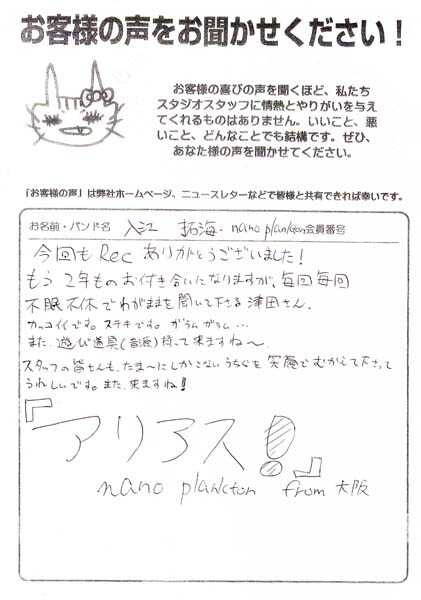 お客様の声をお聞かせください！
お客様の喜びの声を聞くほど、私たち
スタジオスタッフに情熱とやりがいを与え
てくれるものはありません。いいこと、悪
いこと、どんなことでも結構です。ぜひ、
あなた様の声を聞かせてください。
「お客様の声」は弊社ホームページ、ニュースレターなどで皆様と共有できれば幸いです。
お名前・バンド名 入江 拓海・nano plankton会員番号
今回もRecありがとうございました！
もう2年ものお付き合いになりますが、毎回毎回
不眠不休でわがままを聞いて下さる津田さん。
カッコイイです。ステキです。ガラムガラム…
また、遊び道具(音源)持って来ますね〜
スタッフの皆さんも、たま〜にしかこないうちらを笑顔でむかえて下さって
うれしいです。また、来ますね！
『アリアス！』
nano plankton from 大阪